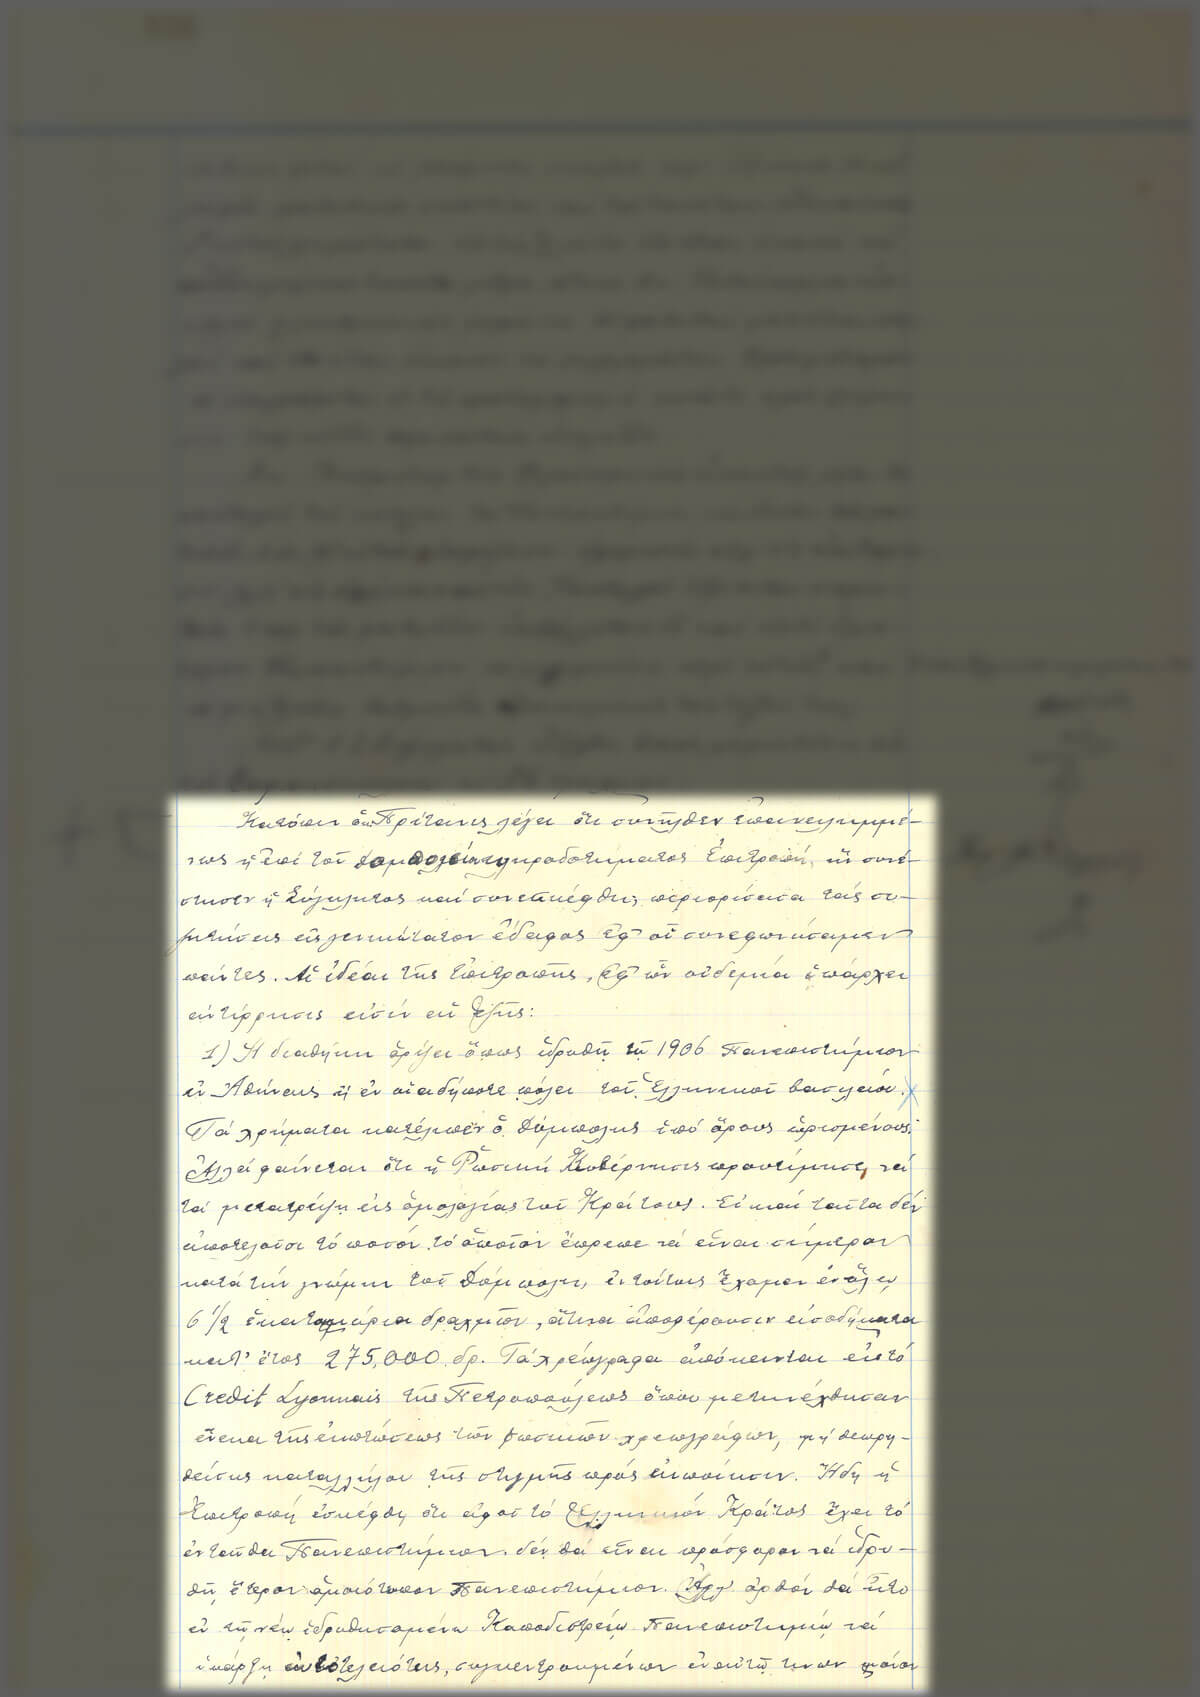 Κατόπιν ὁ κ. Πρύτανις λέγει ὅτι συνῆλθεν ἐπανειλημμέ-
νως ἡ ἐπί τοῦ Δομπολείου κληροδοτήματος Ἐπιτροπή, ἣν συνέ-
στησεν ἡ Σύγκλητος καί συνεσκέφθη, περιορίσασα τάς συ-
ζητήσεις εἰς γενικώτατον ἔδαφος ἐφ' οὗ συνεφωνήσαμεν
πάντες. Αἱ ἰδέαι τῆς Ἐπιτροπῆς, ἐφ' ὧν οὐδεμία ὑπάρχει
ἀντίρρησις εἰσίν αἱ ἑξῆς:
1) Ἡ διαθήκη ὁρίζει ὅπως ἱδρυθῇ τῷ 1906 Πανεπιστήμιον
ἐν Ἀθήναις ἤ ἐν οἱαδήποτε πόλει τοῦ Ἑλληνικοῦ βασιλείου.
Τά χρήματα κατέλιπεν ὁ Δόμπολης ὑπό ὅρους ὡρισμένους.
Ἀλλά φαίνεται ὅτι ἡ Ῥωσική Κυβέρνησις προυτίμησε, νά
τά μετατρέψῃ εἰς ὁμολογίας τοῦ Κράτους. Εἰ καί ταῦτα δέν
ἀποτελοῦσι τό ποσόν τό ὁποῖον ἔπρεπε νά εἶναι σήμερον
κατά τήν γνώμην τοῦ Δόμπολη, ἐν τούτοις ἔχομεν ἐν ὅλῳ
6 1/2 ἑκατομμύρια δραχμῶν, ἅτινα ἀποφέρουσιν εἰσοδήματα
κατ' ἔτος 275,000 δρ. Τά χρεώγραφα ἀπόκεινται εἰς τό
Credit Lyonnais τῆς Πετρουπόλεως ὅπου μετηνέχθησαν
ἕνεκα τῆς ἐκπτώσεως τῶν ῥωσικῶν χρεωγράφων, μή θεωρη-
θείσης καταλλήλου τῆς στιγμῆς πρός ἐκποίησιν. Ἤδη ἡ
Ἐπιτροπή ἐσκέφθη ὅτι ἀφοῦ τό Ἑλληνικόν Κράτος ἔχει τό
ἐνταῦθα Πανεπιστήμιον δέν θά εἶναι πρόσφορον νά ἱδρυ-
θῇ ἕτερον ὁμοιότυπον Πανεπιστήμιον. Ἀλλ' ὀρθόν θά ἦτο
ἐν τῷ νέῳ ἱδρυθησομένῳ Καποδιστρείῳ Πανεπιστημίῳ νά
ὑπάρξῃ αὐτοτέλειά τις, συγκεντρουμένων ἐν αὐτῷ τινων